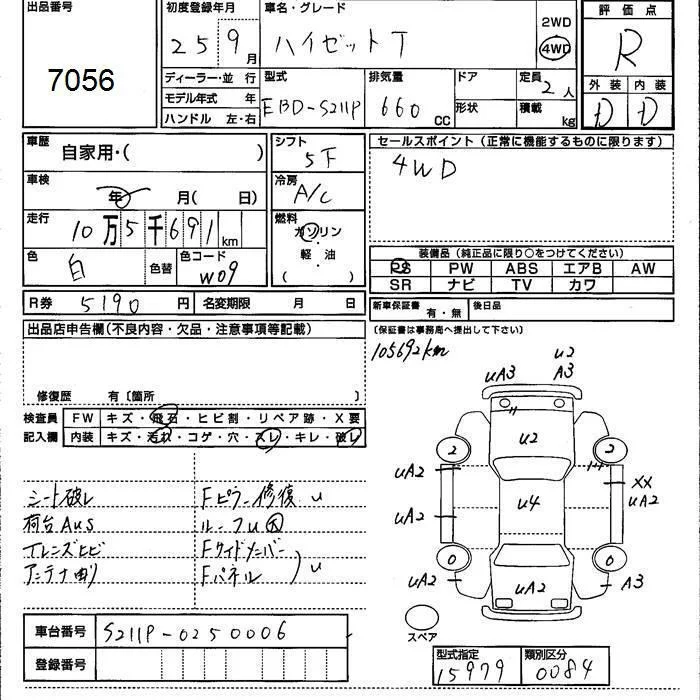 出品番号 初度登録年月 車名・グレード 評価点
7056 25 9月 ハイゼットT 2WD 4WD R
ディーラー・並行 型式 排気量 ドア 定員 2人 外装 内装
モデル年式 年 EBD-S211P 660cc 形状 積載 kg D D
ハンドル 左・右
車歴 自家用・( ) シフト 5F セールスポイント (正常に機能するものに限ります)
4WD
車検 年 月( 日) 冷房 A/C
走行 10万5千691km 燃料 ガソリン
軽・油
( )
色 白 色替 色コード W09
装備品(純正品に限り○をつけてください)
PS PW ABS エアB AW
SR ナビ TV カワ
R券 5190円 名変期限 月 日 新車保証書 有・無 後日品
出品店申告欄(不良内容・欠品・注意事項等記載) (保証書は事務局へ提出して下さい)
105692km
修復歴 有〔箇所 〕
検査員 FW キズ・飛石・ヒビ割・リペア跡・X要
記入欄 内装 キズ・汚れ・コゲ・穴・スレ・キレ・破レ
シート破レ Fピラー修復 u
荷台AuS ルーフu
レンズヒビ Fサイドメンバー
アンテナ曲り Fパネル u
uA3 u2
A3
u2
2 2
uA2 XX
uA2
u4
uA2
0 0
uA2 uA2 A3
スペア
車台番号 S211P-0250006
登録番号
型式指定 類別区分
15979 0084